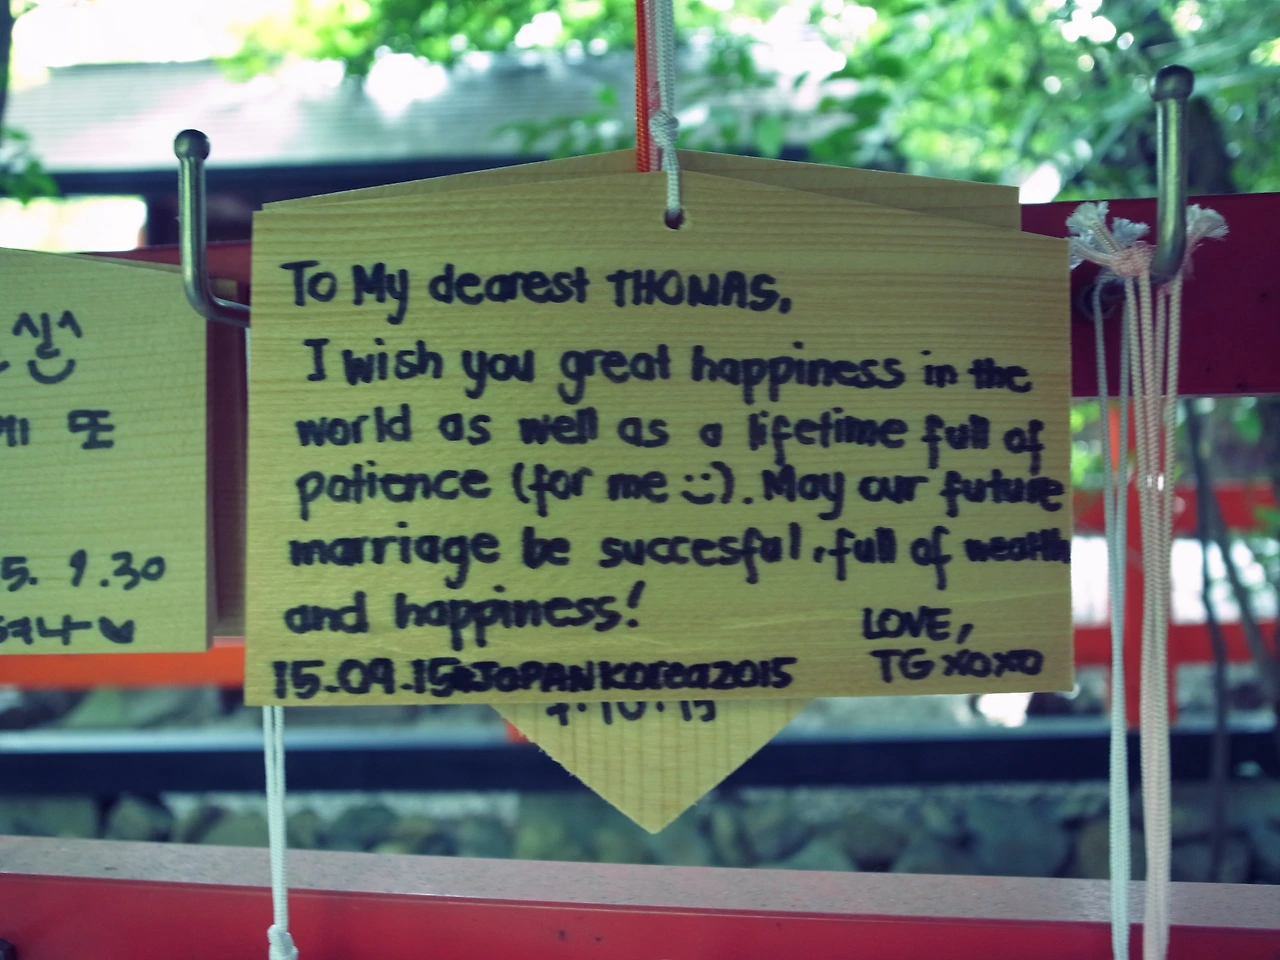 To My dearest THOMAS,
I wish you great happiness in the
world as well as a lifetime full of
patience (for me :)). May our future
marriage be succesful, full of wealth
and happiness!
LOVE,
15.09.15 JAPANKorea2015
TG xoxo
9.10.15
실
또
5. 9.30